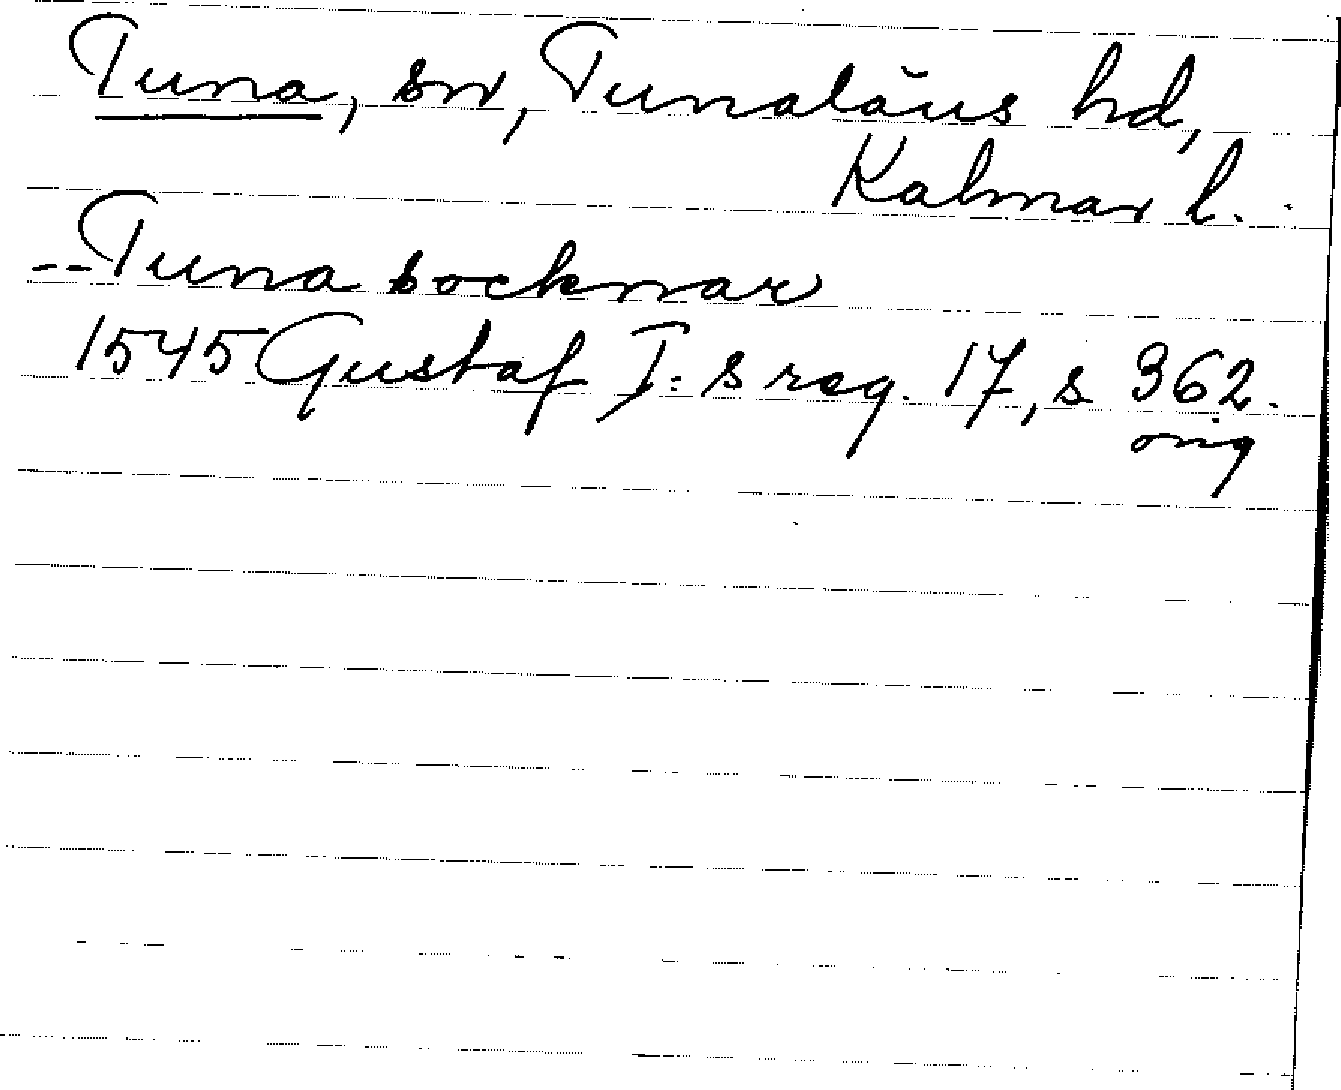 Tuna, sn, Tunaläns hd,
Kalmar l.
--Tuna socknar
1545 Gustaf I:s reg. 17, s 362.
orig